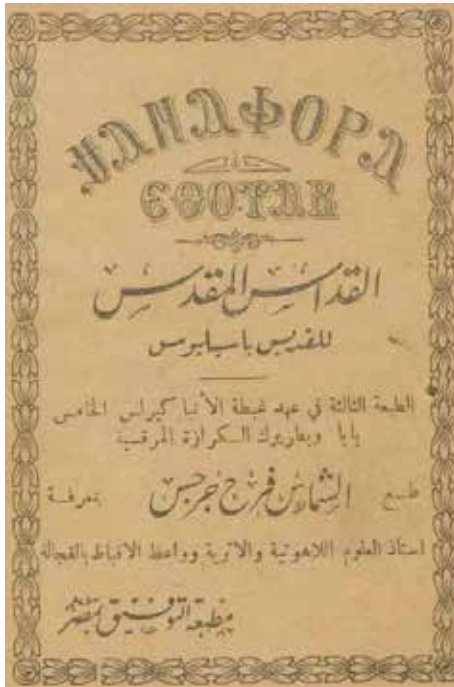 ϮΑΝΑΦΟΡΑ
ⲈⲐⲞⲨⲀⲂ
القداس المقدس
للقديس باسيليوس
الطبعة الثالثة في عهد غبطة الأنبا كيرلس الخامس
بابا وبطريرك الكرازة المرقسية
طبع الشماس فرج جرجس بمعرفة
استاذ العلوم اللاهوتية والاثرية وواعظ الاقباط بالفجالة
مطبعة التوفيق بمصر